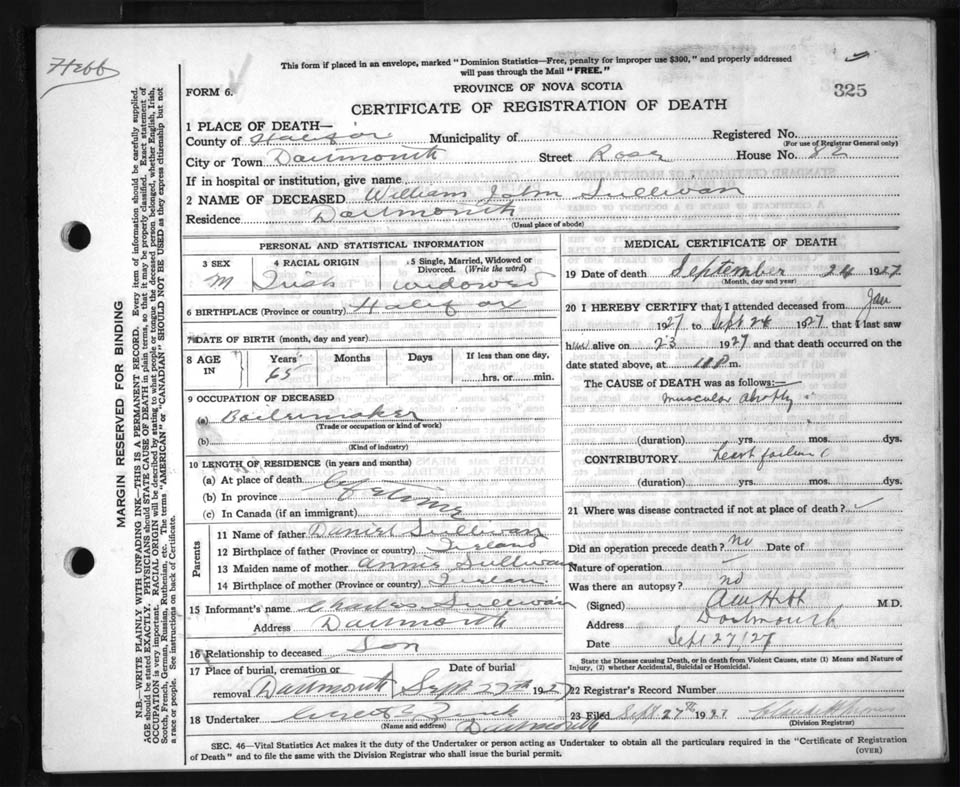 Hebb
This form if placed in an envelope, marked "Dominion Statistics—Free, penalty for improper use $300," and properly addressed
will pass through the Mail "FREE."
FORM 6.
PROVINCE OF NOVA SCOTIA
325
CERTIFICATE OF REGISTRATION OF DEATH
1 PLACE OF DEATH—
County of Halifax Municipality of Registered No.
(For use of Registrar General only)
City or Town Dartmouth Street Rose House No. 82
If in hospital or institution, give name
2 NAME OF DECEASED William John Sullivan
Residence Dartmouth
(Usual place of abode)
PERSONAL AND STATISTICAL INFORMATION
3 SEX 4 RACIAL ORIGIN 5 Single, Married, Widowed or
Divorced. (Write the word)
M Irish Widowed
6 BIRTHPLACE (Province or country) Halifax
7 DATE OF BIRTH (month, day and year)
8 AGE IN Years Months Days If less than one day,
65 hrs. or min.
9 OCCUPATION OF DECEASED
(a) Boilermaker
(Trade or occupation or kind of work)
(b)
(Kind of industry)
10 LENGTH OF RESIDENCE (in years and months)
(a) At place of death
(b) In province
(c) In Canada (if an immigrant)
Parents
11 Name of father Daniel Sullivan
12 Birthplace of father (Province or country) Ireland
13 Maiden name of mother Annie Sullivan
14 Birthplace of mother (Province or country)
15 Informant's name Charles Sullivan
Address Dartmouth
16 Relationship to deceased Son
17 Place of burial, cremation or Date of burial
removal Dartmouth Sept 27th 1927
18 Undertaker
(Name and address) Dartmouth
MEDICAL CERTIFICATE OF DEATH
19 Date of death September 24 1927
(Month, day and year)
20 I HEREBY CERTIFY that I attended deceased from Jan
1927 to Sept 24 1927 that I last saw
h alive on 23 1927 and that death occurred on the
date stated above, at m.
The CAUSE of DEATH was as follows:—
muscular
(duration) yrs. mos. dys.
CONTRIBUTORY heart failure
(duration) yrs. mos. dys.
21 Where was disease contracted if not at place of death?
Did an operation precede death? no Date of
Nature of operation
Was there an autopsy? no
(Signed) M.D.
Address Dartmouth
Date Sept 27/27
State the Disease causing Death, or in death from Violent Causes, state (1) Means and Nature of
Injury, (2) whether Accidental, Suicidal or Homicidal.
22 Registrar's Record Number
23 Filed Sept 27th 1927
(Division Registrar)
SEC. 46—Vital Statistics Act makes it the duty of the Undertaker or person acting as Undertaker to obtain all the particulars required in the "Certificate of Registration
of Death" and to file the same with the Division Registrar who shall issue the burial permit.
(OVER)
MARGIN RESERVED FOR BINDING
N.B.—WRITE PLAINLY WITH UNFADING INK—THIS IS A PERMANENT RECORD. Every item of information should be carefully supplied.
AGE should be stated EXACTLY. PHYSICIANS should STATE CAUSE OF DEATH in plain terms, so that it may be properly classified. Exact statement of
OCCUPATION is very important. RACIAL ORIGIN will be described by stating to what people or tongue the deceased person belonged, whether English, Irish,
Scotch, French, German, Russian, Ruthenian, etc. The terms "AMERICAN" or "CANADIAN" SHOULD NOT BE USED as they express citizenship but not
a race or people. See instructions on back of Certificate.